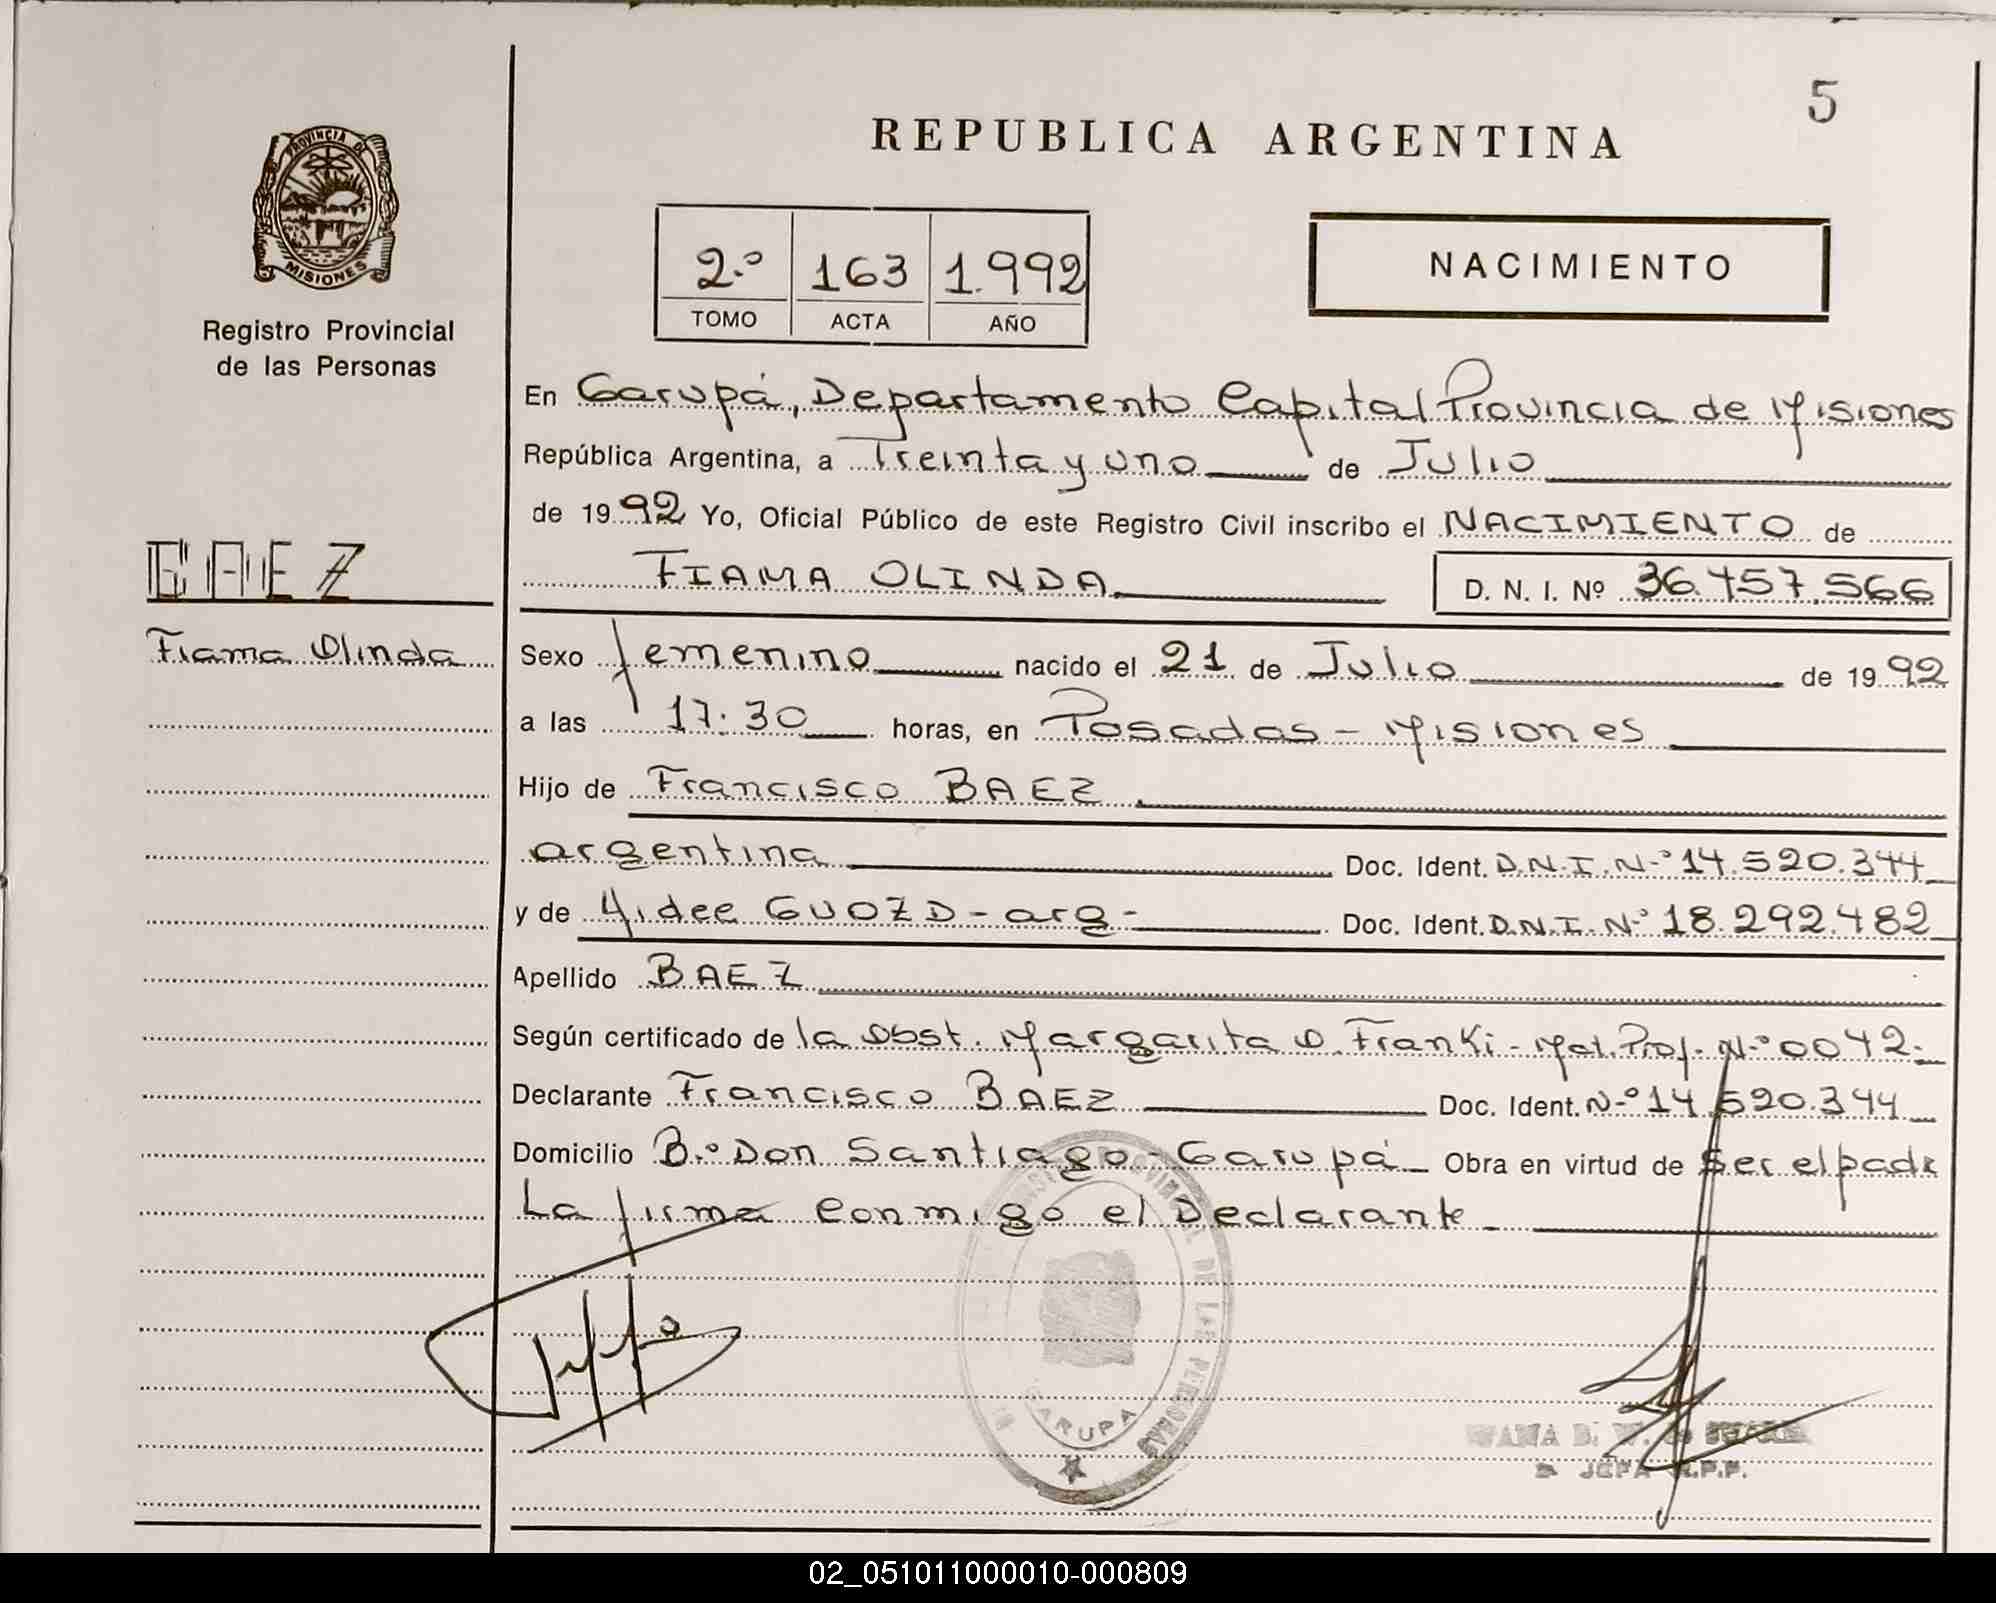 5
REPUBLICA ARGENTINA
PROVINCIA DE
MISIONES
Registro Provincial
de las Personas
2.º 163 1.992
TOMO ACTA AÑO
NACIMIENTO
En Garupá, Departamento Capital Provincia de Misiones
República Argentina, a Treinta y uno de Julio
de 1992 Yo, Oficial Público de este Registro Civil inscribo el NACIMIENTO de
BAEZ
FIAMA OLINDA D. N. I. Nº 36.457.566
Fiama Olinda
Sexo femenino nacido el 21 de Julio de 1992
a las 17:30 horas, en Posadas - Misiones
Hijo de Francisco BAEZ
argentina Doc. Ident. D.N.I. N.º 14.520.344
y de Yidee GUOZD - arg - Doc. Ident. D.N.I. N.º 18.292.482
Apellido BAEZ
Según certificado de la Obst. Margarita O. Franki - Mat. Prof. N.º 0042 -
Declarante Francisco BAEZ Doc. Ident. N.º 14.520.344
Domicilio B.º Don Santiago - Garupá Obra en virtud de ser el padre
La firma conmigo el Declarante
PROVINCIAL DE LAS PERSONAS
GARUPA
JEFA R.P.P.
02_051011000010-000809